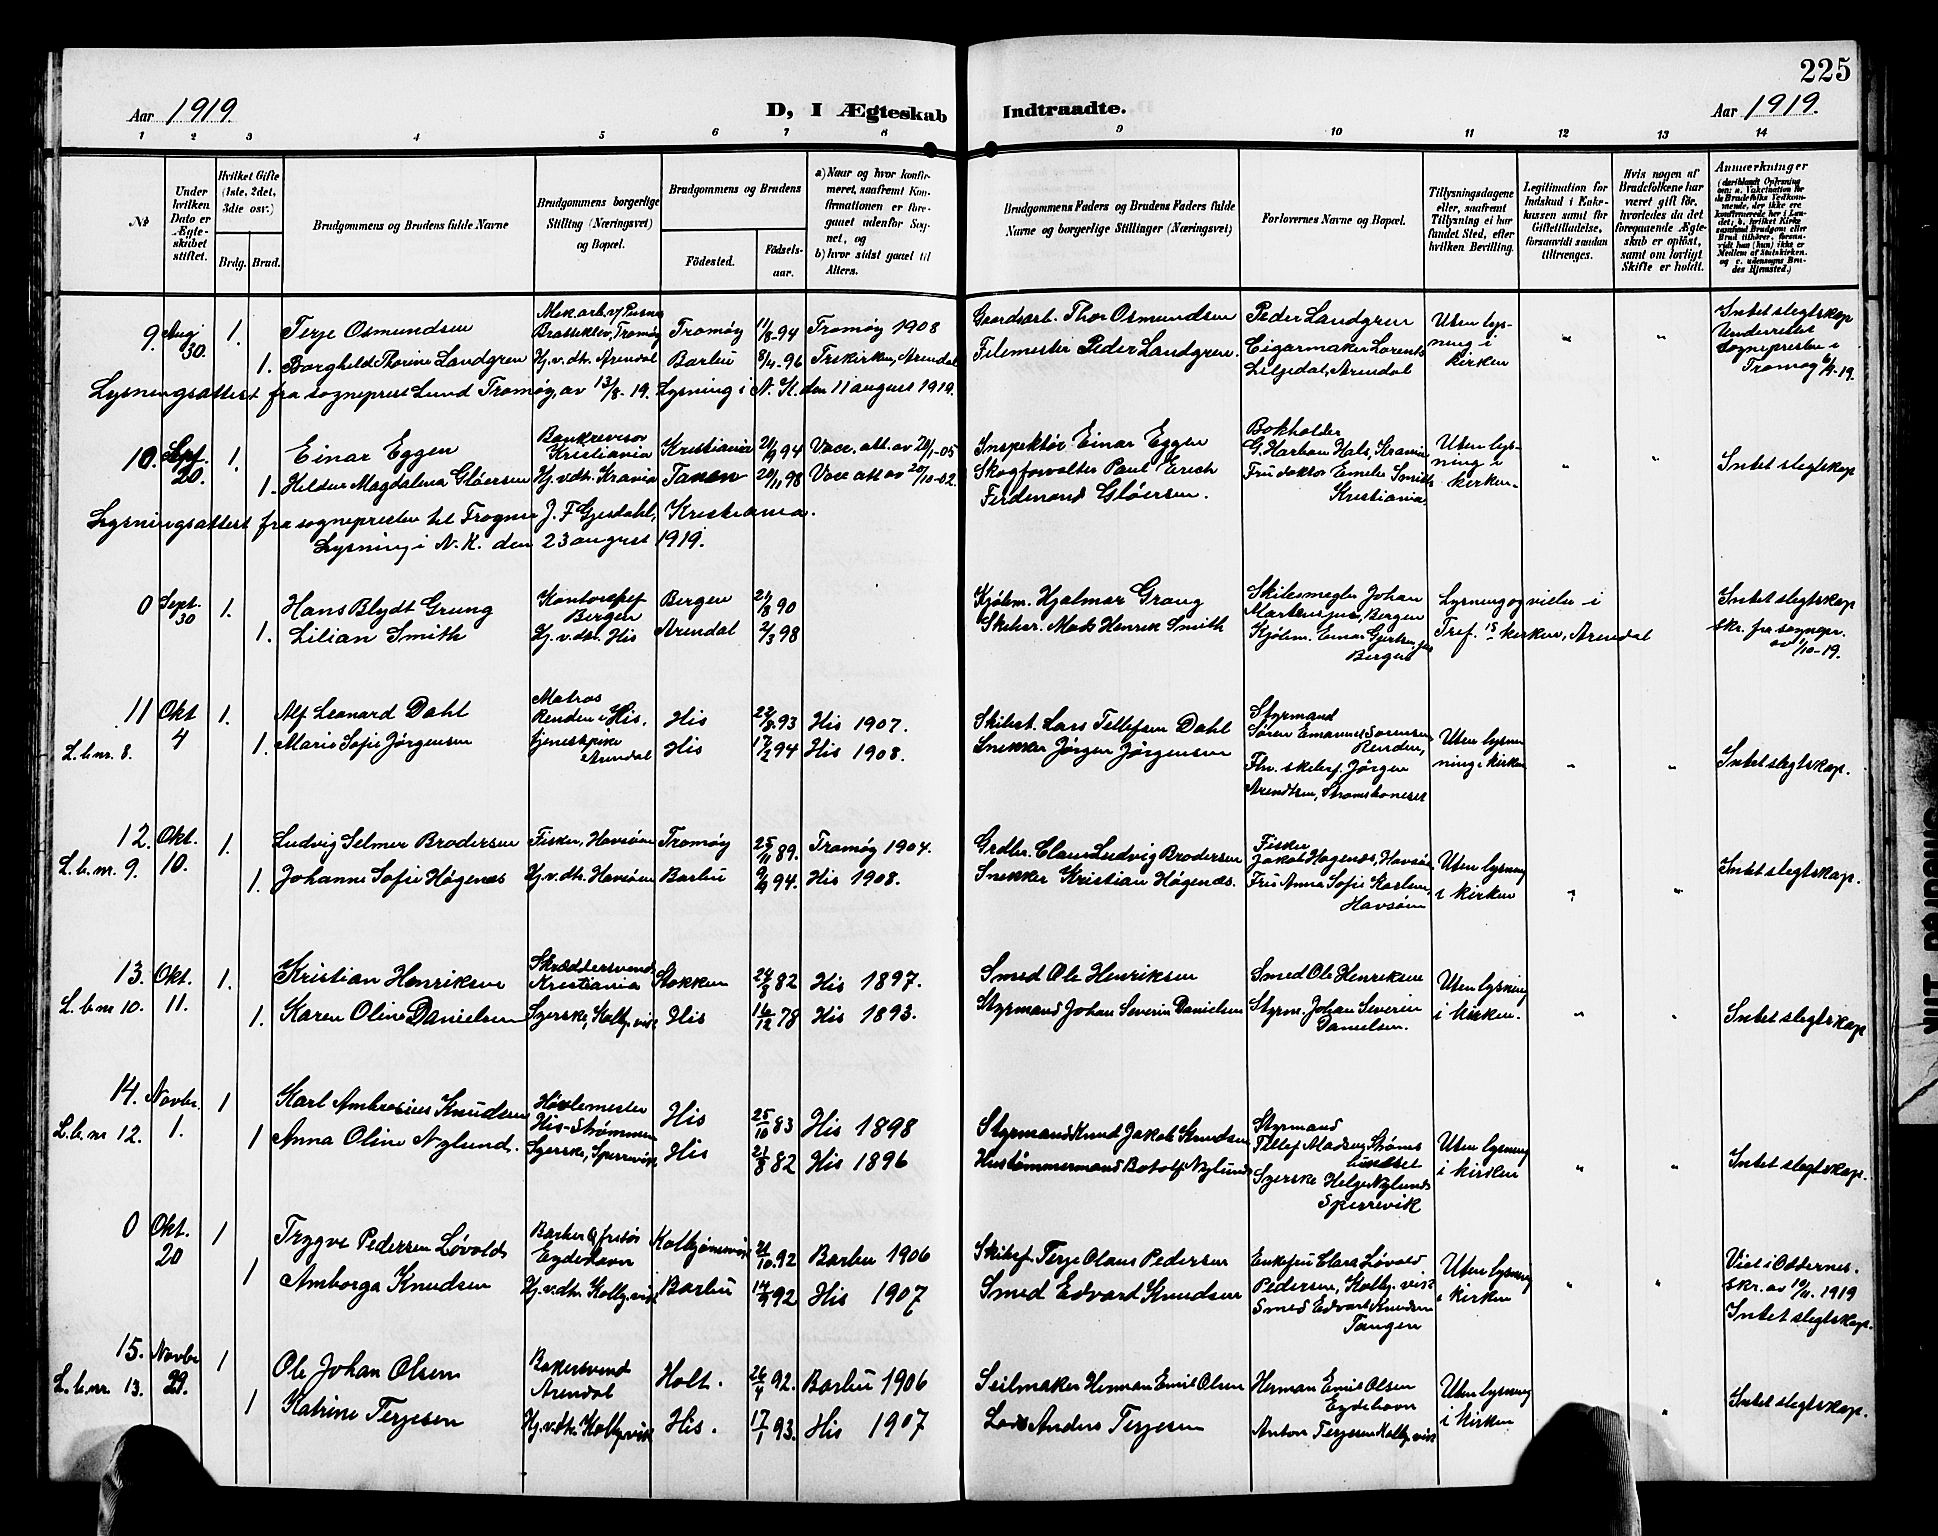 225
Aar 1919. D, I Ægteskab Indtraadte. Aar 1919.
1 2 3 4 5 6 7 8 9 10 11 12 13 14
№
Under hvilken Dato er Ægteskabet stiftet.
Hvilket Gifte (1ste, 2det, 3die osv.)
Brdg. Brud.
Brudgommens og Brudens fulde Navne
Brudgommens borgerlige Stilling (Næringsvei) og Bopæl.
Brudgommens og Brudens
Födested. Födselsaar.
a) Naar og hvor konfirmeret, saafremt Konfirmationen er foregaaet udenfor Sognet, og
b) hvor sidst gaaet til Alters.
Brudgommens Faders og Brudens Faders fulde Navne og borgerlige Stillinger (Næringsvei)
Forlovernes Navne og Bopæl.
Tillysningsdagene eller, saafremt Tillysning ei har fundet Sted, efter hvilken Bevilling.
Legitimation for Indskud i Enkekassen samt for Giftetilladelse, forsaavidt saadan tiltrænges.
Hvis nogen af Brudefolkene har været gift för, hvorledes da det foregaaende Ægteskab er oplöst, samt om lovligt Skifte er holdt.
Anmærkninger
9. Aug 30. 1. Terje Osmundsen Mek.arb. Brattekley, Tromøy Tromøy 11/8 94 Tromøy 1908 Gaardarb. Thor Osmundsen Peder Landgren Uten lysning i kirken " " Intet slegtskap
1. Borghild Thorine Landgren Hj.v.dtr. Arendal Barbu 8/4 96 Trskirken, Arendal Filemester Peder Landgren. Cigarmaker Lorents Liljedal, Arendal Underrettet sognepresten i Tromøy 6/9-19.
Lysningsattest fra sogneprest Lund Tromøy, av 13/8-19. Lysning i N. K. den 11 august 1919.
10. Sept. 20. 1. Einar Eggen Bankrevisor Kristiania Kristiania 21/9 94 Vacc. att. av 28/1-05 Inspektør Einar Eggen Bokholder G. Harbou Hals, Kr.ania Uten lysning i kirken. " " Intet slegtskap
1. Hildur Magdalena Gløersen Hj.v.dtr. Kr.ania Tanen 20/11 98 Vacc att av 20/10-02. Skogforvalter Paul Erich Ferdinand Gløersen. Fru doktor Emelie Smith Kristiania
Lysningsattest fra sognepresten til Frogner J. F Gjesdahl, Kristiania.
Lysning i N. K. den 23 august 1919.
0 Sept. 30 1. Hans Blydt Grung Kontorchef Bergen Bergen 21/8 90 Kjøbm. Hjalmar Grung Skibsmegler Johan Martens jun., Bergen Lysning og vielse i Tref.ts kirken, Arendal Intet slegtskap
1. Lilian Smith Hj.v.dtr. His Arendal 2/3 98 Skibsr. Mads Henrik Smith Kjøbm. Einar Gjertsen jun Bergen skr. fra sognepr. av 1/10-19.
11 Okt 4 1. Alf Leonard Dahl Matros Renden i His. His 22/8 93 His 1907. Skibst. Lars Tellefsen Dahl Styrmand Søren Emanuel Sørensen Renden, Uten lysning i kirken " " Intet slegtskap.
L.b.nr. 8. 1. Marie Sofie Jørgensen tjenestpike Arendal His 17/2 94 His 1908. Snekker Jørgen Jørgensen Fhv. skibsf. Jørgen Arendtsen, Strømsbuneset
12. Okt. 10. 1. Ludvig Selmer Brodersen Fisker, Havsøen Tromøy 25/11 89. Tromøy 1904. Grdbr. Claus Ludvig Brodersen Fisker Jakob Høgenæs, Havsøen Uten lysning i kirken " " Intet slegtskap.
L.b.nr. 9. 1. Johanne Sofie Høgenæs Hj.v.dtr. Havsøen Barbu 9/9 94. His 1908. Snekker Kristian Høgenæs. Fru Anna Sofie Karlsen, Havsøen
13. Okt. 11. 1. Kristian Henriksen Skræddersvend Kristiania Stokken 24/8 82 His 1897. Smed Ole Henriksen Smed Ole Henriksen Uten lysning i kirken. " " Intet slegtskap
L.b.nr 10. 1. Karen Oline Danielsen Syerske, Kolbj.vik His 16/12 78 His 1893. Styrmand Johan Severin Danielsen Styrm. Johan Severin Danielsen.
14. Novbr. 1. 1 Karl Ambrosius Knudsen Høvlemester His-Strømmen His 25/10 83 His 1898 Styrmand Knud Jakob Knudsen Styrmand Tellef Madsen, Strømsbuneset Uten lysning i kirken " " Intet slegtskap.
L.b.nr 12. 1 Anna Oline Nylund. Syerske, Sperrevik His 21/8 82 His 1896 Hustømmermand Botolf Nylund Syerske Helga Nylund Sperrevik
0 Okt. 20 1 Trygve Pedersen Løvold Barber & frisør Eydehavn Kolbjønsvik 21/10. 92 Barbu 1906 Skibsf. Terje Olaus Pedersen Enkefru Clara Løvold Pedersen, Kolbj.vik Uten lysning i kirken " " Viet i Oddernes. skr. av 10/11. 1919
1 Amborga Knudsen Hj.v.dtr. Kolbj.vik Barbu 14/9 92 His 1907 Smed Edvard Knudsen Smed Edvart Knudsen Tangen Intet slegtskap.
15. Novbr 29. 1 Ole Johan Olsen Bakersvend Arendal Holt. 26/4 92. Barbu 1906 Seilmaker Herman Emil Olsen Herman Emil Olsen Eydehavn Uten lysning i kirken " Intet slegtskap.
L.b.nr. 13. 1 Katrine Terjesen Hj.v.dtr. Kolbj.vik His. 17/1 93. His 1907 Lods Anders Terjesen Anton Terjesen Kolbj.vik